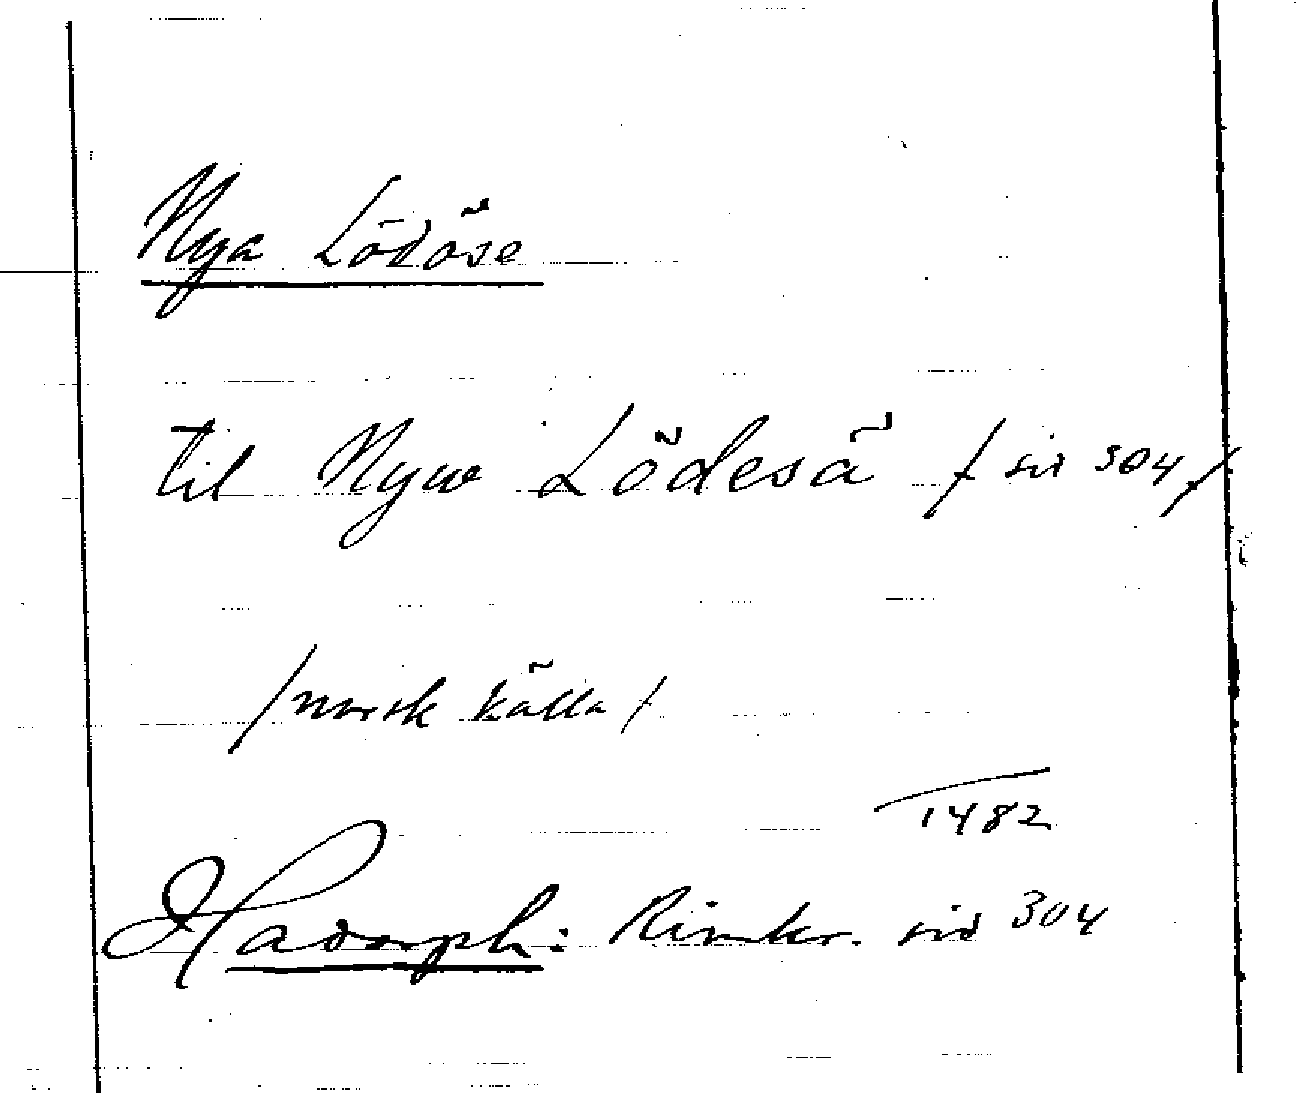 Nya Lödöse
til Nyw Lödesä / sid 304 /
/ norsk källa /
1482
Hadorph: Rimkr. sid 304